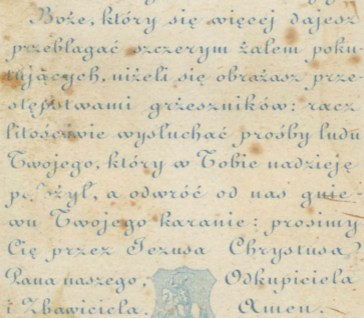 Boże, który się więcej dajesz
przebłagać szczerym żalem poku
tujących, niżeli się obrażasz prze
stępstwami grzeszników: racz
litościwie wysłuchać prośby ludu
Twojego, który w Tobie nadzieję
położył, a odwróć od nas gnie
wu Twojego karanie: prosimy
Cię przez Jezusa Chrystusa
Pana naszego, Odkupiciela
i Zbawiciela. Amen.